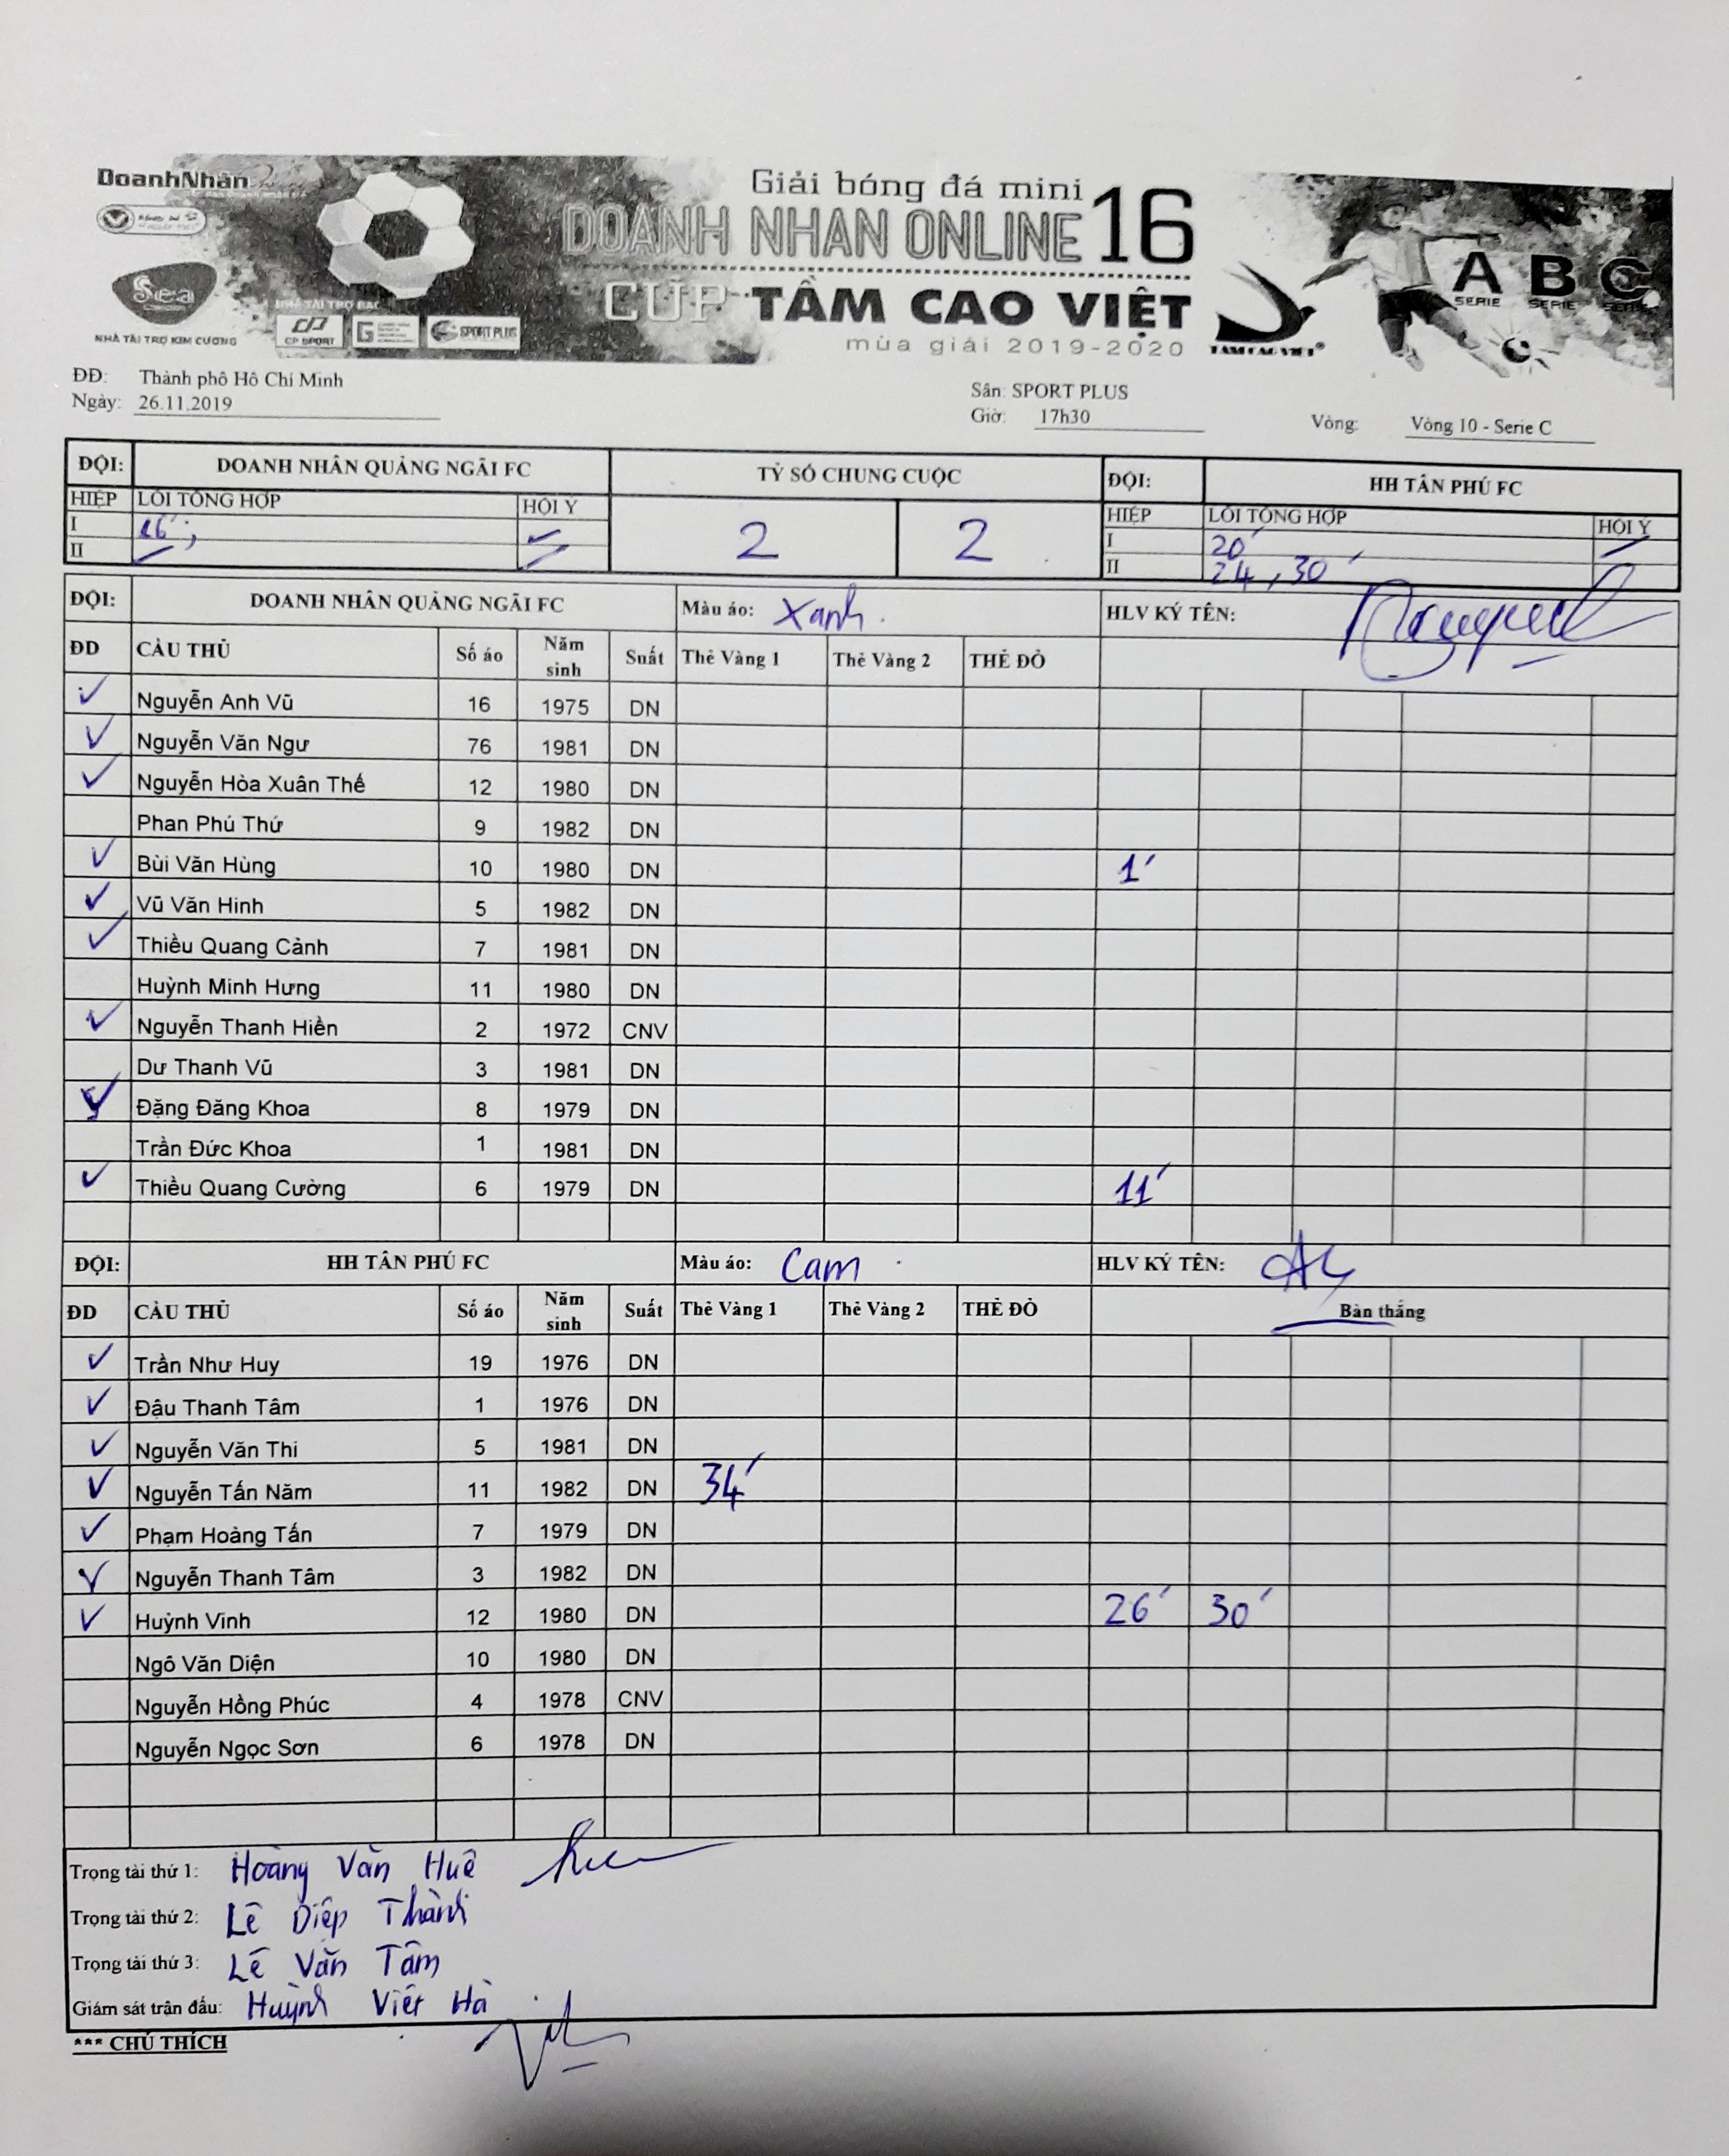 DoanhNhân
Giải bóng đá mini
DOANH NHAN ONLINE 16
Sea
CUP TẦM CAO VIỆT
mùa giải 2019-2020
NHÀ TÀI TRỢ KIM CƯƠNG
NHÀ TÀI TRỢ BẠC
CP SPORT
SPORT PLUS
TAM CAO VIET
A SERIE
B SERIE
C
ĐĐ: Thành phố Hồ Chí Minh
Sân: SPORT PLUS
Ngày: 26.11.2019
Giờ: 17h30
Vòng: Vòng 10 - Serie C
ĐỘI: DOANH NHÂN QUẢNG NGÃI FC TỶ SỐ CHUNG CUỘC ĐỘI: HH TÂN PHÚ FC
HIỆP LỖI TỔNG HỢP HỘI Ý 2 2 HIỆP LỖI TỔNG HỢP HỘI Ý
I 16'; I 20'
II II 24, 30'
ĐỘI: DOANH NHÂN QUẢNG NGÃI FC Màu áo: Xanh HLV KÝ TÊN:
ĐD CẦU THỦ Số áo Năm sinh Suất Thẻ Vàng 1 Thẻ Vàng 2 THẺ ĐỎ
Nguyễn Anh Vũ 16 1975 DN
Nguyễn Văn Ngư 76 1981 DN
Nguyễn Hòa Xuân Thế 12 1980 DN
Phan Phú Thứ 9 1982 DN
Bùi Văn Hùng 10 1980 DN 1'
Vũ Văn Hinh 5 1982 DN
Thiều Quang Cảnh 7 1981 DN
Huỳnh Minh Hưng 11 1980 DN
Nguyễn Thanh Hiền 2 1972 CNV
Dư Thanh Vũ 3 1981 DN
Đặng Đăng Khoa 8 1979 DN
Trần Đức Khoa 1 1981 DN
Thiều Quang Cường 6 1979 DN 11'
ĐỘI: HH TÂN PHÚ FC Màu áo: Cam HLV KÝ TÊN:
ĐD CẦU THỦ Số áo Năm sinh Suất Thẻ Vàng 1 Thẻ Vàng 2 THẺ ĐỎ Bàn thắng
Trần Như Huy 19 1976 DN
Đậu Thanh Tâm 1 1976 DN
Nguyễn Văn Thi 5 1981 DN
Nguyễn Tấn Năm 11 1982 DN 34'
Phạm Hoàng Tấn 7 1979 DN
Nguyễn Thanh Tâm 3 1982 DN
Huỳnh Vinh 12 1980 DN 26' 30'
Ngô Văn Diện 10 1980 DN
Nguyễn Hồng Phúc 4 1978 CNV
Nguyễn Ngọc Sơn 6 1978 DN
Trọng tài thứ 1: Hoàng Văn Huê
Trọng tài thứ 2: Lê Diệp Thành
Trọng tài thứ 3: Lê Văn Tâm
Giám sát trận đấu: Huỳnh Việt Hà
*** CHÚ THÍCH